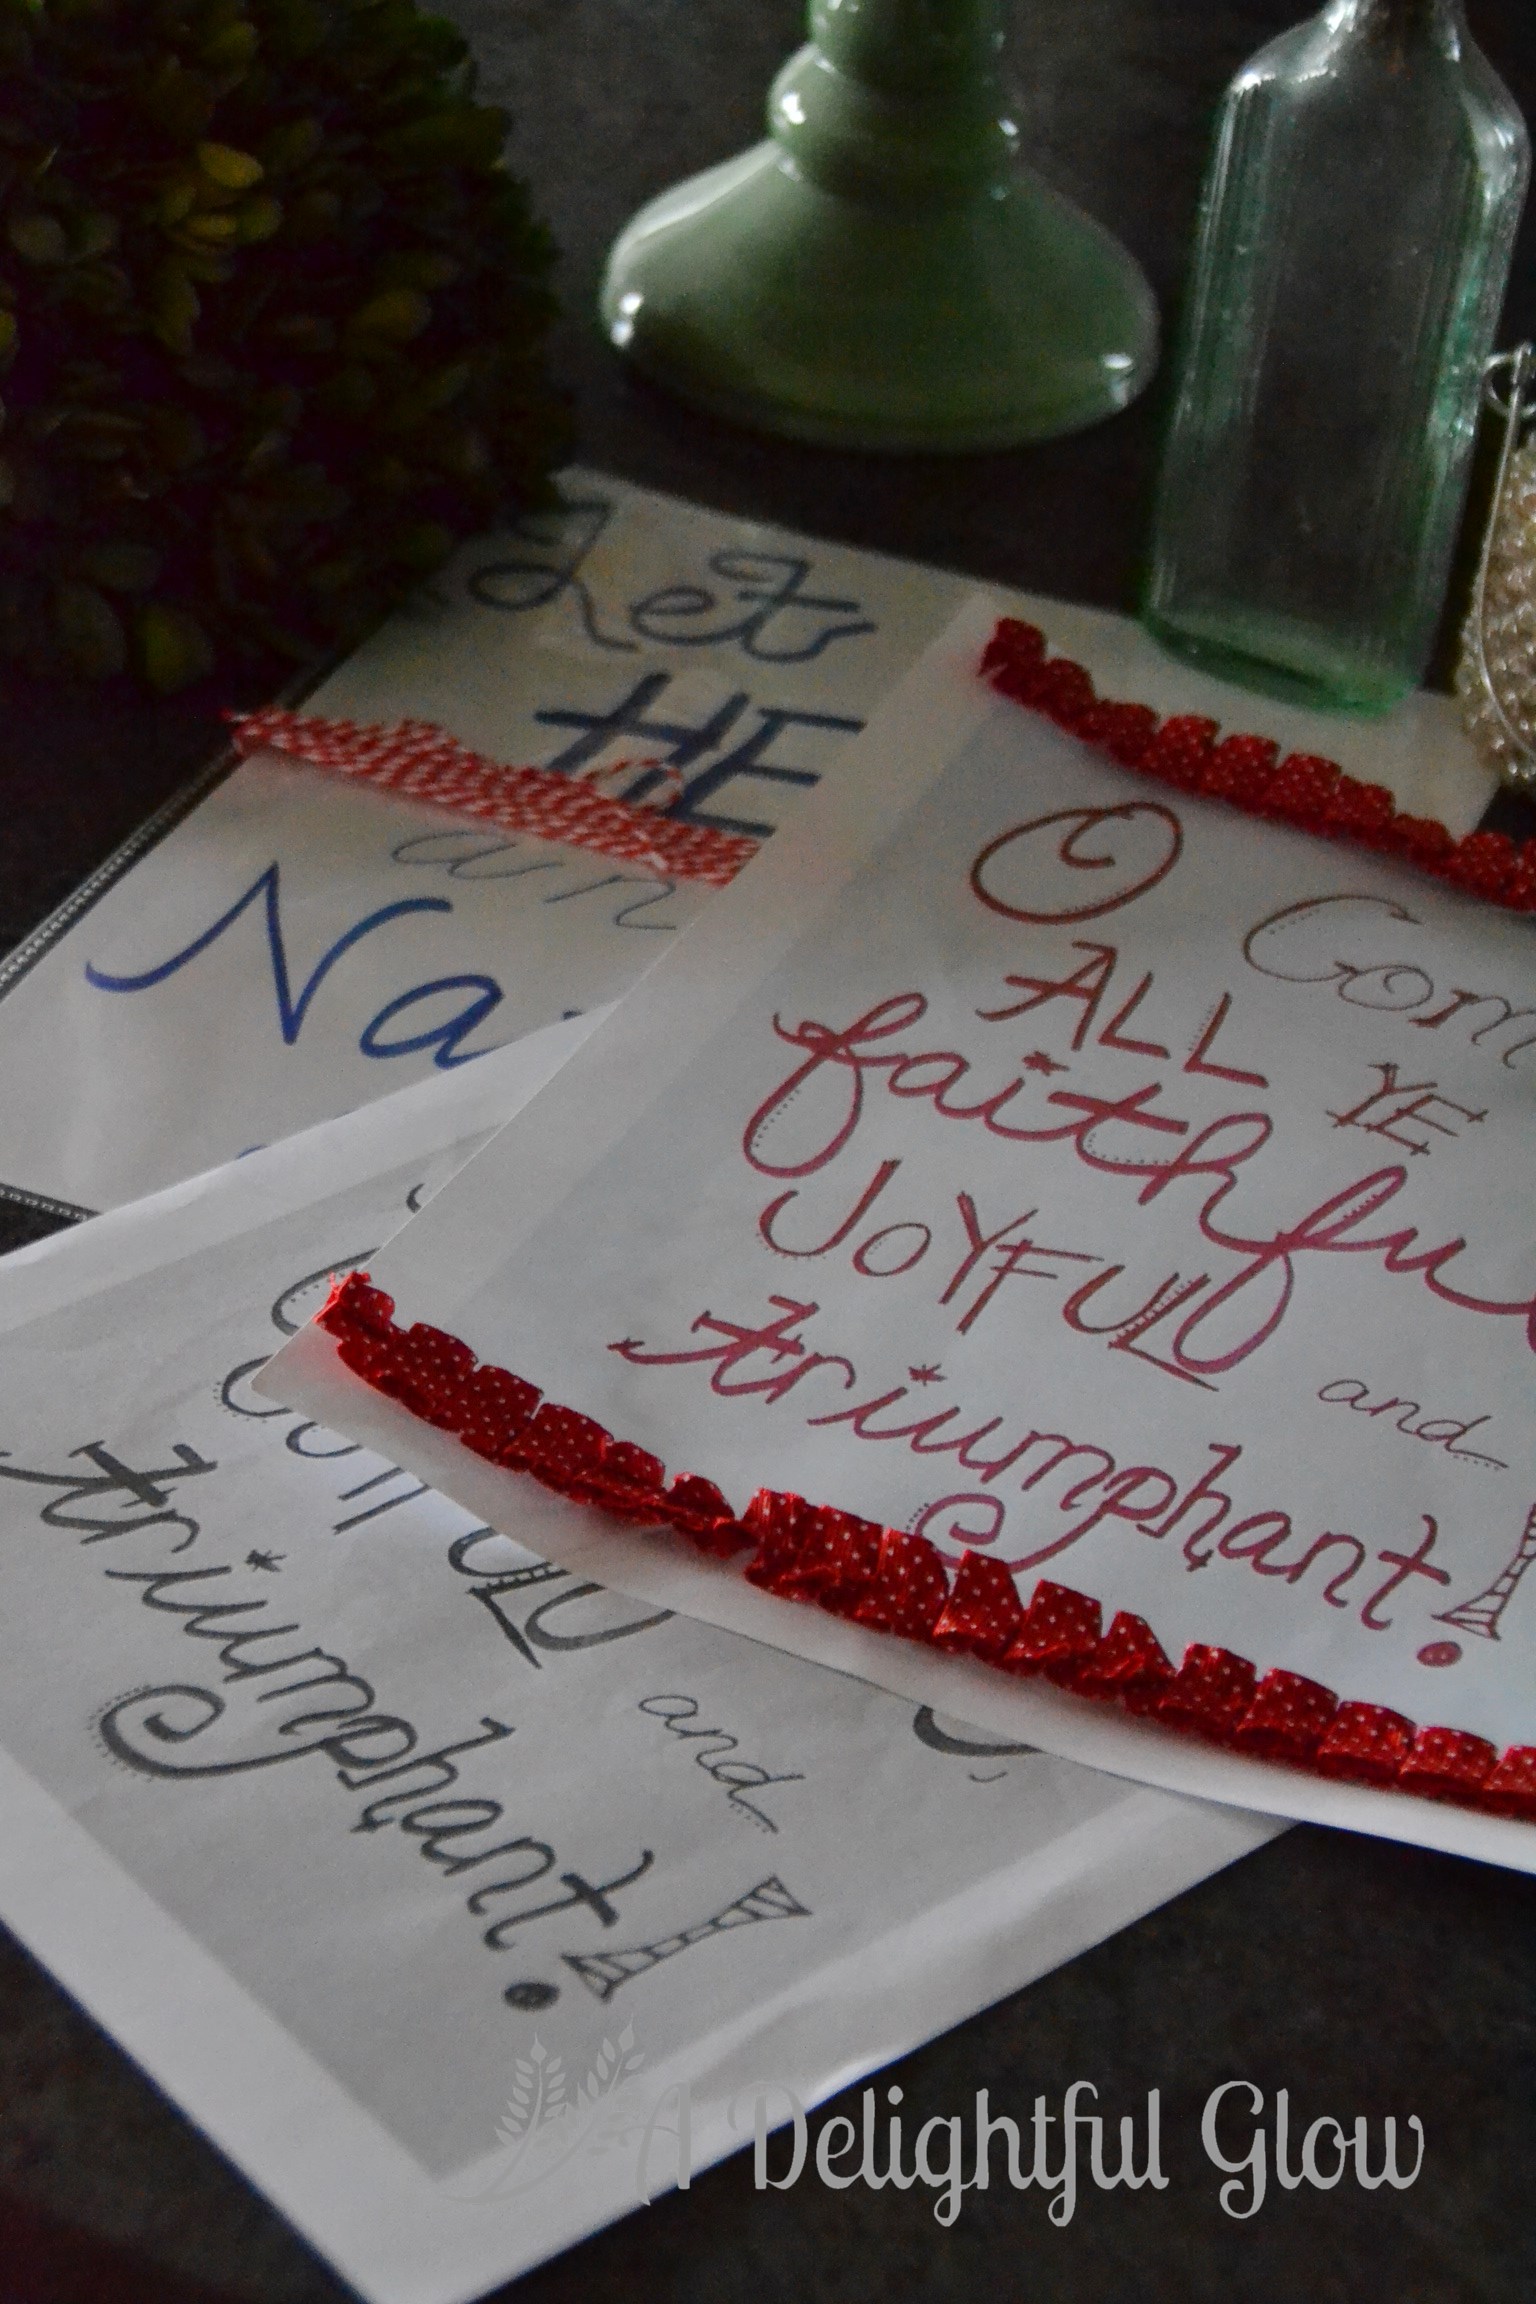 Let
HE
Na
O Com
ALL YE
faithfu
JOYFUL and
triumphant!
triumphant!
and
A Delightful Glow